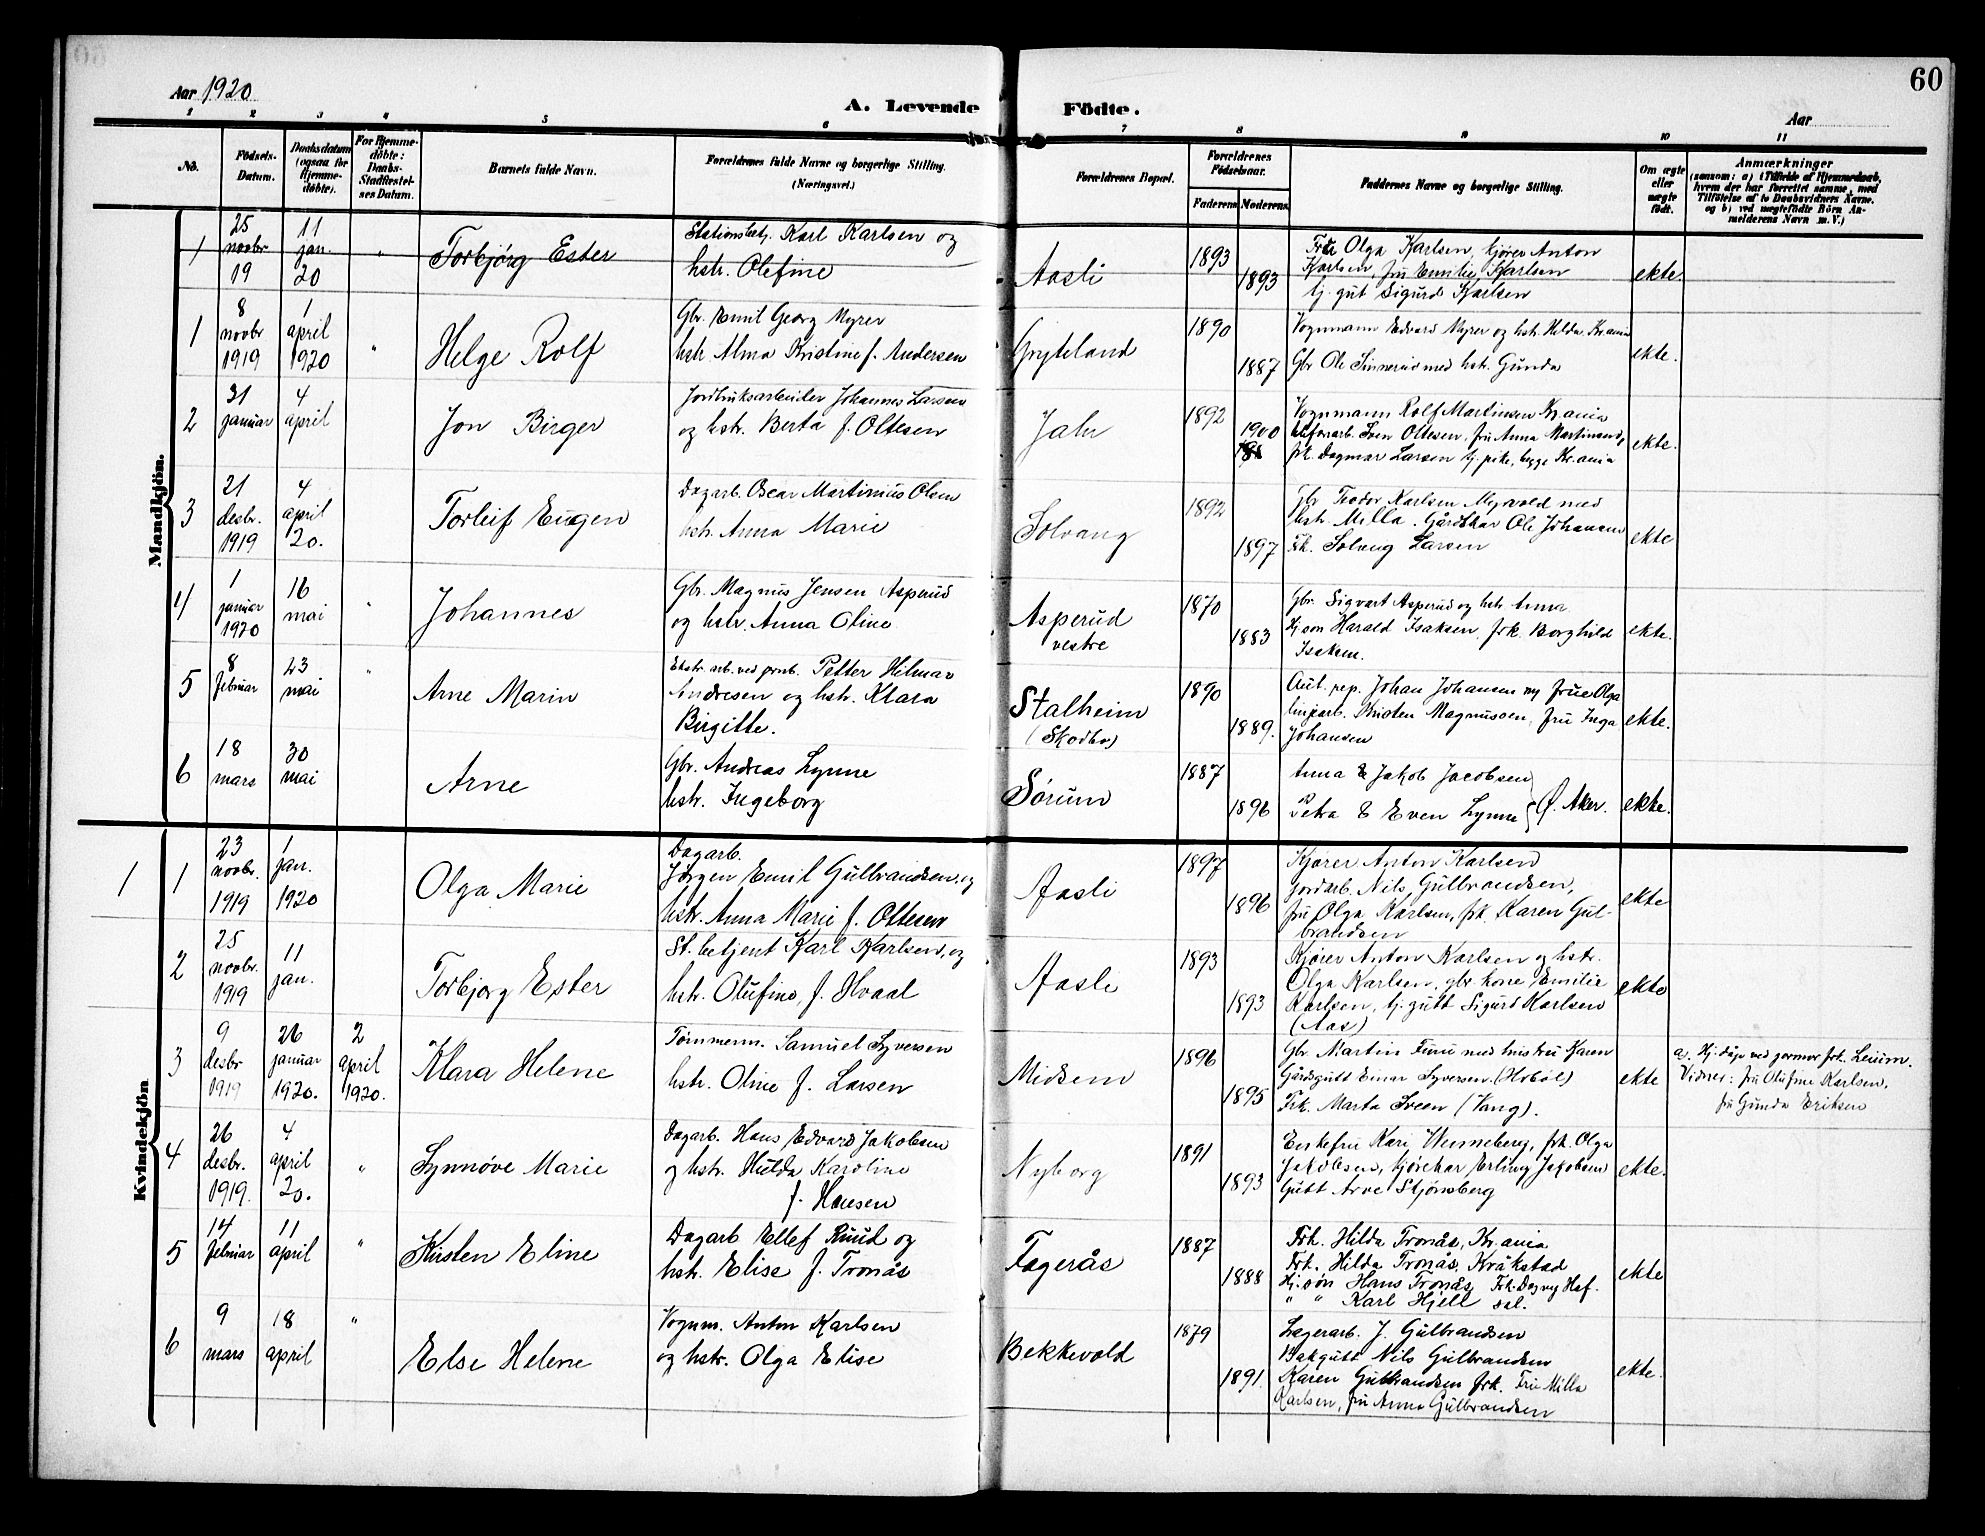 60
Aar 1920
A. Levende Födte.
Aar
1 2 3 4 5 6 7 8 9 10 11
No.
Födsels-
Datum.
Daabsdatum
(ogsaa for
Hjemme-
döbte).
For Hjemme-
döbte:
Daabs-
Stadfæstel-
ses Datum.
Barnets fulde Navn.
Forældrenes fulde Navne og borgerlige Stilling.
(Næringsvei.)
Forældrenes Bopæl.
Forældrenes
Födselsaar.
Faderens Moderens
Faddernes Navne og borgerlige Stilling.
Om ægte
eller
uægte
födt.
Anmærkninger
(saasom: a) i Tilfælde af Hjemmedaab,
hvem der har forrettet samme, med
Tilföielse af to Daabsvidners Navne.
og b) ved uægtefödte Börn An-
melderens Navn m. V.)
Mandkjön.
1
25
novbr
19
11
jan.
20
"
Torbjørg Ester
Stationsbetj. Karl Karlsen og
hstr. Olefine
Aasli
1893
1893
Olga Karlsen, kjører Anton
Karlsen, fru Emilie Karlsen
tj. gut Sigurd Karlsen
ekte.
1
8
novbr
1919
1
april
1920
"
Helge Rolf
Gbr. Emil Georg Myrer
hstr. Alma Kristine f. Andersen
Gryteland
1890
1887
Vognmann Edvard Myrer og hstr. Hilda Kr.ania
Gbr Ole Sinnerud med hstr. Gunda
ekte.
2
31
januar
4
april
Jon Birger
Jordbruksarbeider Johannes Larsen
og hstr. Berta f. Ottesen
Jahr
1892
1900
Vognmann Rolf Martinsen Kr.ania
Sven Ottesen, fru Anna Martinsen,
frk. Dagmar Larsen tj. pike, begge Kr.ania
ekte.
3
21
desbr.
1919
4
april
20.
Torleif Eugen
Dagarb. Oscar Martinius Olsen
hstr. Anna Marie
Solvang
1892
1897
Gbr Teodor Karlsen Myrvold med
hstr. Milla. Gårdskar Ole Johansen
Frk. Solveig Larsen
ekte
4
1
januar
1920
16
mai
"
Johannes
Gbr. Magnus Jensen Asperud
og hstr. Anna Oline
Asperud
vestre
1870
1883
Gbr. Sigvart Asperud og hstr Anna
Hj. søn Harald Isaksen, frk. Borghild
Isaksen.
ekte.
5
8
februar
23
mai
"
Arne Marin
Ekstr. arb. ved jernb. Petter Hilmar
Andresen og hstr. Klara
Birgitte.
Stalheim
(Skodbo)
1890
1889.
Aut. rep. Johan Johansen og frue Olga
linjearb. Kristen Magnussen, fru Inga
Johansen
ekte.
6
18
mars
30
mai
Arne
Gbr. Andreas Lynne
hstr. Ingeborg
Sørum
1887
1896
Anna & Jakob Jacobsen
Petra & Even Lynne } Ø. Aker.
ekte.
Kvindekjön
1
1
23
novbr.
1919
1
jan.
1920
Olga Marie
Dagarb.
Jørgen Emil Gulbrandsen og
hstr. Anna Marie f. Ottesen
Aasli
1897
1896
Kjører Anton Karlsen
Jordarb. Nils Gulbrandsen,
fru Olga Karlsen, frk. Karen Gul-
brandsen
ekte
2
25
novbr.
1919
11
jan.
Torbjørg Ester
St. betjent Karl Karlsen, og
hstr. Olufine, f. Hvaal
Aasli
1893
1893
Kjører Anton Karlsen og hstr.
Olga Karlsen, gbr. kone Emilie
Karlsen, tj. gutt Sigurd Karlsen
(Aas)
ekte
3
9
desbr
1919
26
januar
1920.
2
april
1920.
Klara Helene
Tømmerm. Samuel Syversen
hstr. Oline f. Larsen
Midsem
1896
1895
Gbr. Martin Furu med hustru Karen
Gårdsgutt Einar Syversen (Hobøl)
Frk. Marta Sveen (Vang).
ekte
a. Hj. døpt ved jormor frk. Leium.
Vidner: fru Olufine Karlsen,
fru Gunda Eriksen
4
26
desbr.
1919.
4
april
20.
"
Synnøve Marie
Dagarb. Hans Edvard Jakobsen
og hstr. Hulda Karoline
f. Hansen
Nyborg
1891
1893
Enkefru Kari Wenneberg, frk. Olga
Jakobsen, kjørekar Erling Jakobsen
Gutt Arve Stjønsberg
ekte.
5
14
februar
11
april
"
Kirsten Eline
Dagarb Ellef Ruud og
hstr. Elise f. Tronås
Fagerås
1887
1888
Frk. Hilda Tronås, Kr.ania
Frk. Hilda Tronås, Kråkstad
Hj. søn Hans Tronås, Frk. Dagny Haf-
" " Karl Hjell sel.
ekte
6
9
mars
18
april
"
Else Helene
Vognm. Anton Karlsen
og hstr. Olga Elise
Bekkevold
1879
1891.
Lagerarb. J. Gulbrandsen
Bakgutt Nils Gulbrandsen
Karen Gulbrandsen frk. Fru Milla
Karlsen, fru Anna Gulbrandsen
ekte.